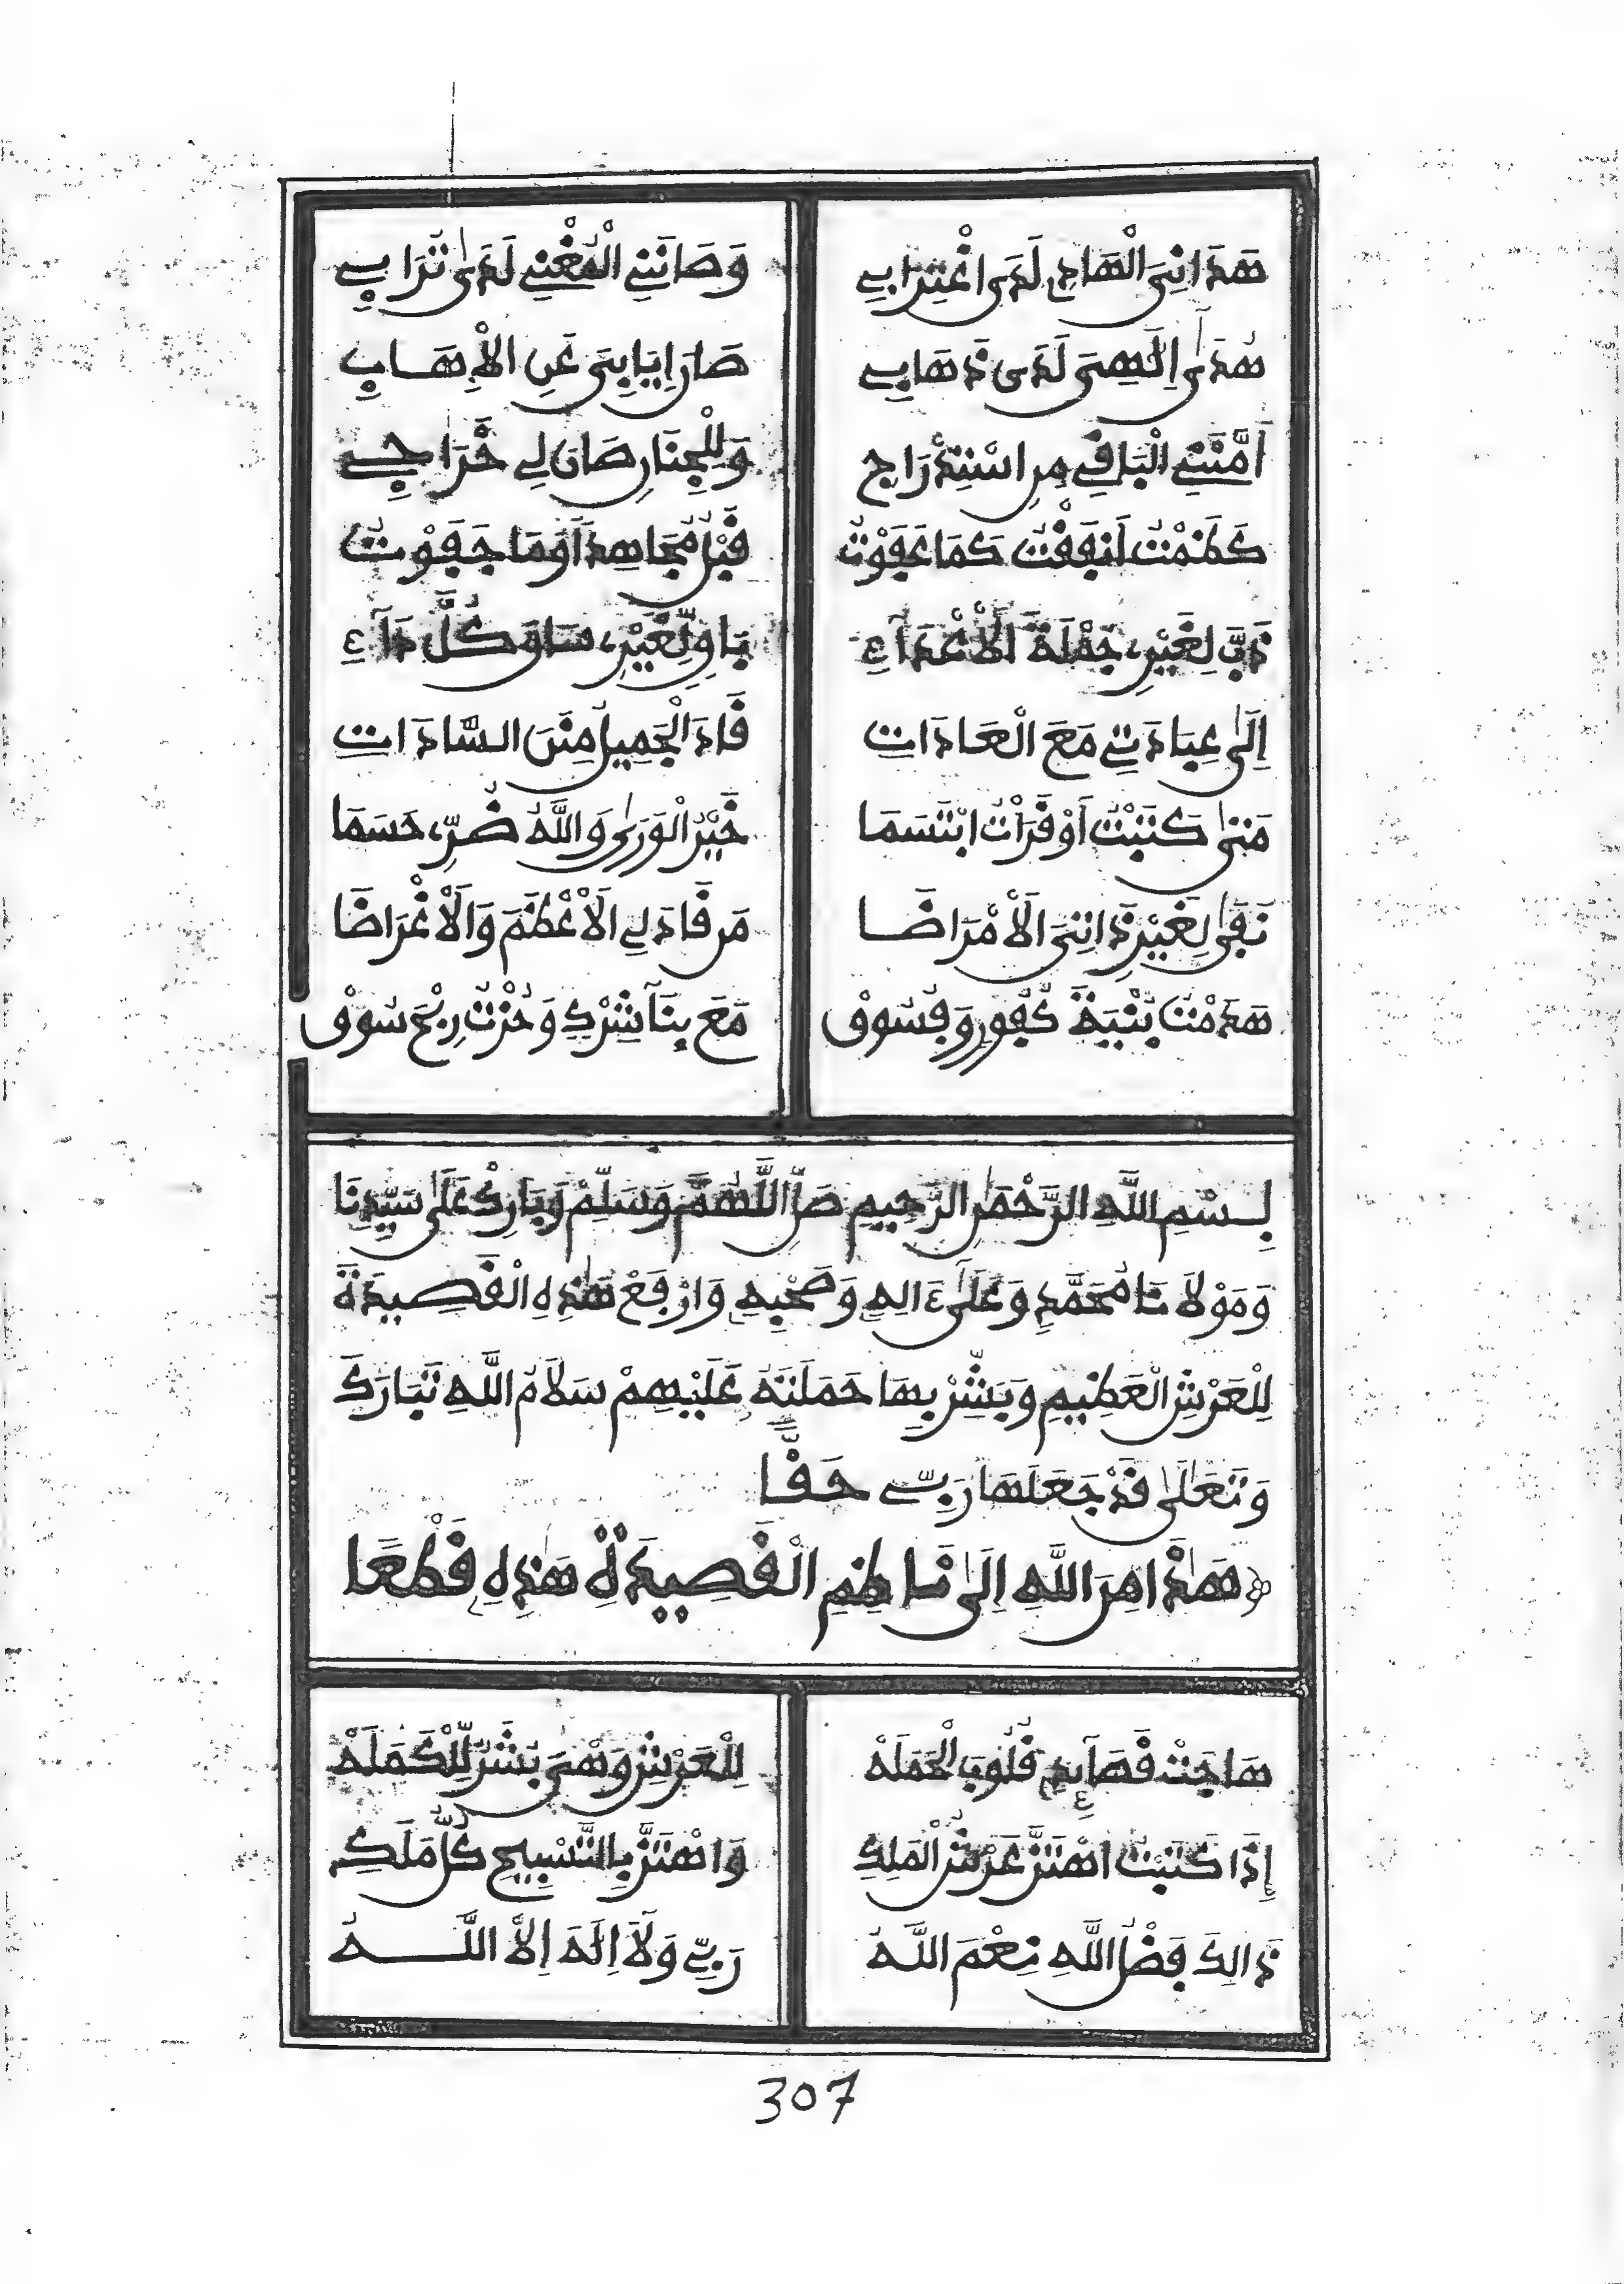 هَدَانِيَ الْهَادِي لَدَى اغْتِرَابِي وَصَانَنِي الْمُغْنِي لَدَى تُرَابِ
هُدَى إِلَهِي لَدَى ذَهَابِي صَارَ إِيَابِي عَنِ الْإِهَابِ
أَمَّنَنِي الْبَاقِي مِنِ اسْتِدْرَاجِ وَلِلْجِنَانِ صَانَ لِي خَرَاجِي
كَظَمْتُ أَنفَقْتُ كَمَا عَفَوْتُ قَبْلُ مُجَاهِدًا وَمَا جَفَوْتُ
ذَبَّ لِغَيْرِي جُمْلَةَ الْأَعْدَآءِ بَاقٍ لِغَيْرِي سَاقَ كُلَّ دَآءِ
إِلَى عِبَادَتِي مَعَ الْعَادَاتِ قَادَ الْجَمِيلُ مِنَنَ السَّادَاتِ
مَتَى كَتَبْتُ أَوْ قَرَأْتُ ابْتَسَمَا خَيْرُ الْوَرَى وَاللَّهُ ضُرِّي حَسَمَا
نَفَى لِغَيْرِ ذَاتِيَ الْأَمْرَاضَا مَن قَادَ لِي الْأَعْظَمَ وَالْأَغْرَاضَا
هَدَمْتُ بُنْيَةَ كُفُورٍ وَفُسُوقْ مَعَ بِنَآ شِرْكٍ وَحُزْتُ رِبْحَ سُوقْ
بِسْمِ اللَّهِ الرَّحْمَنِ الرَّحِيمِ صَلِّ اللَّهُمَّ وَسَلِّمْ وَبَارِكْ عَلَى سَيِّدِنَا
وَمَوْلَانَا مُحَمَّدٍ وَعَلَى ءَالِهِ وَصَحْبِهِ وَارْفَعْ هَذِهِ الْقَصِيدَةَ
لِلْعَرْشِ الْعَظِيمِ وَبَشِّرْ بِهَا حَمَلَتَهُ عَلَيْهِمْ سَلَامُ اللَّهِ تَبَارَكَ
وَتَعَلَى قَدْ جَعَلَهَا رَبِّي حَقًّا
هَذَا مِنَ اللَّهِ إِلَى نَاظِمِ الْقَصِيدَةِ هَذِهِ قَطْعًا
هَاجَتْ قَصَآئِدِي قُلُوبَ الْحَمَلَهْ لِلْعَرْشِ وَهْيَ بُشَرٌ لِلْكَمَلَهْ
إِذَا كَتَبْتُ اهْتَزَّ عَرْشُ الْمَلِكِ وَاهْتَزَّ بِالتَّسْبِيحِ كُلُّ مَلَكِ
ذَالِكَ فَضْلُ اللَّهِ نِعْمَ اللَّهُ رَبِّي وَلَآ إِلَهَ إِلَّا اللَّهُ
307